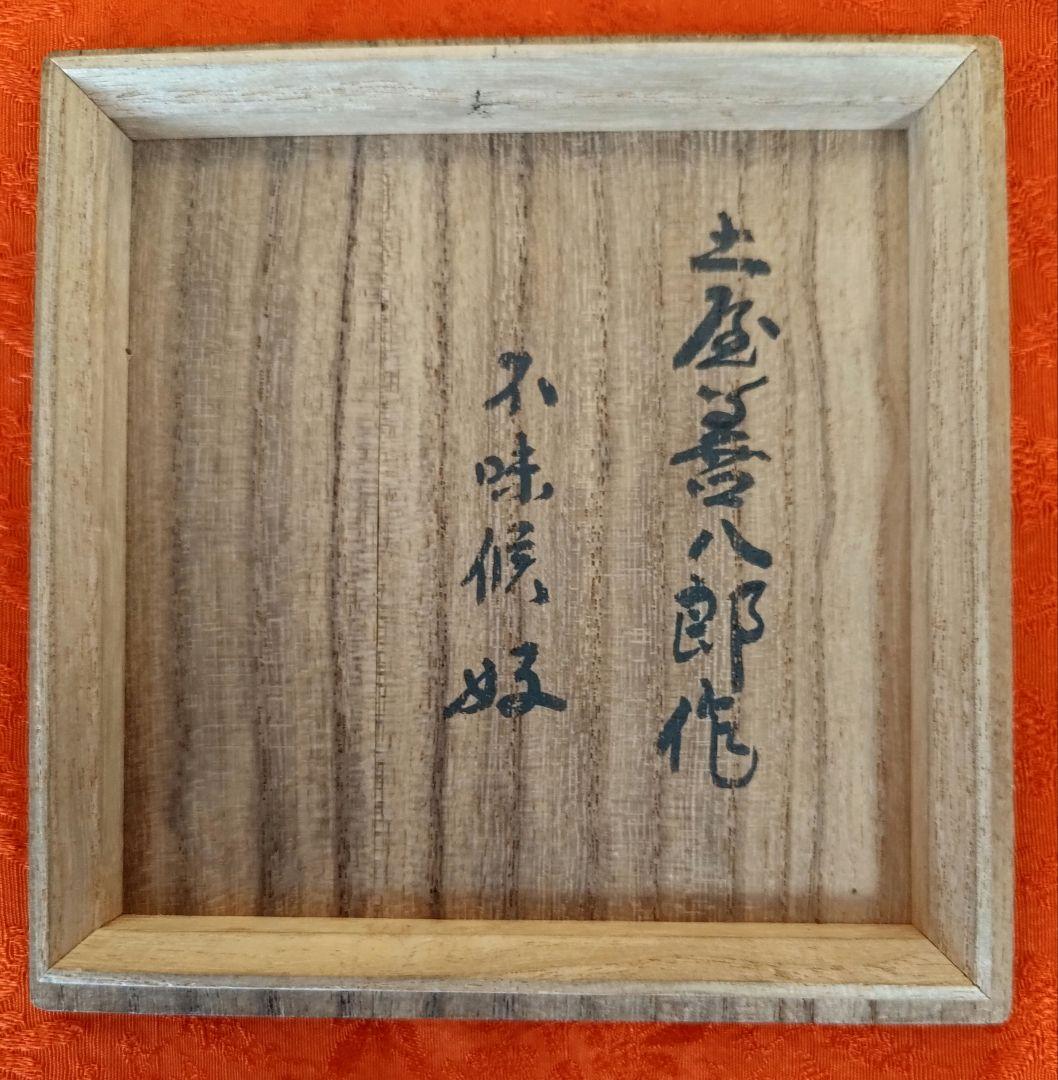 土屋善八郎作
不昧候好